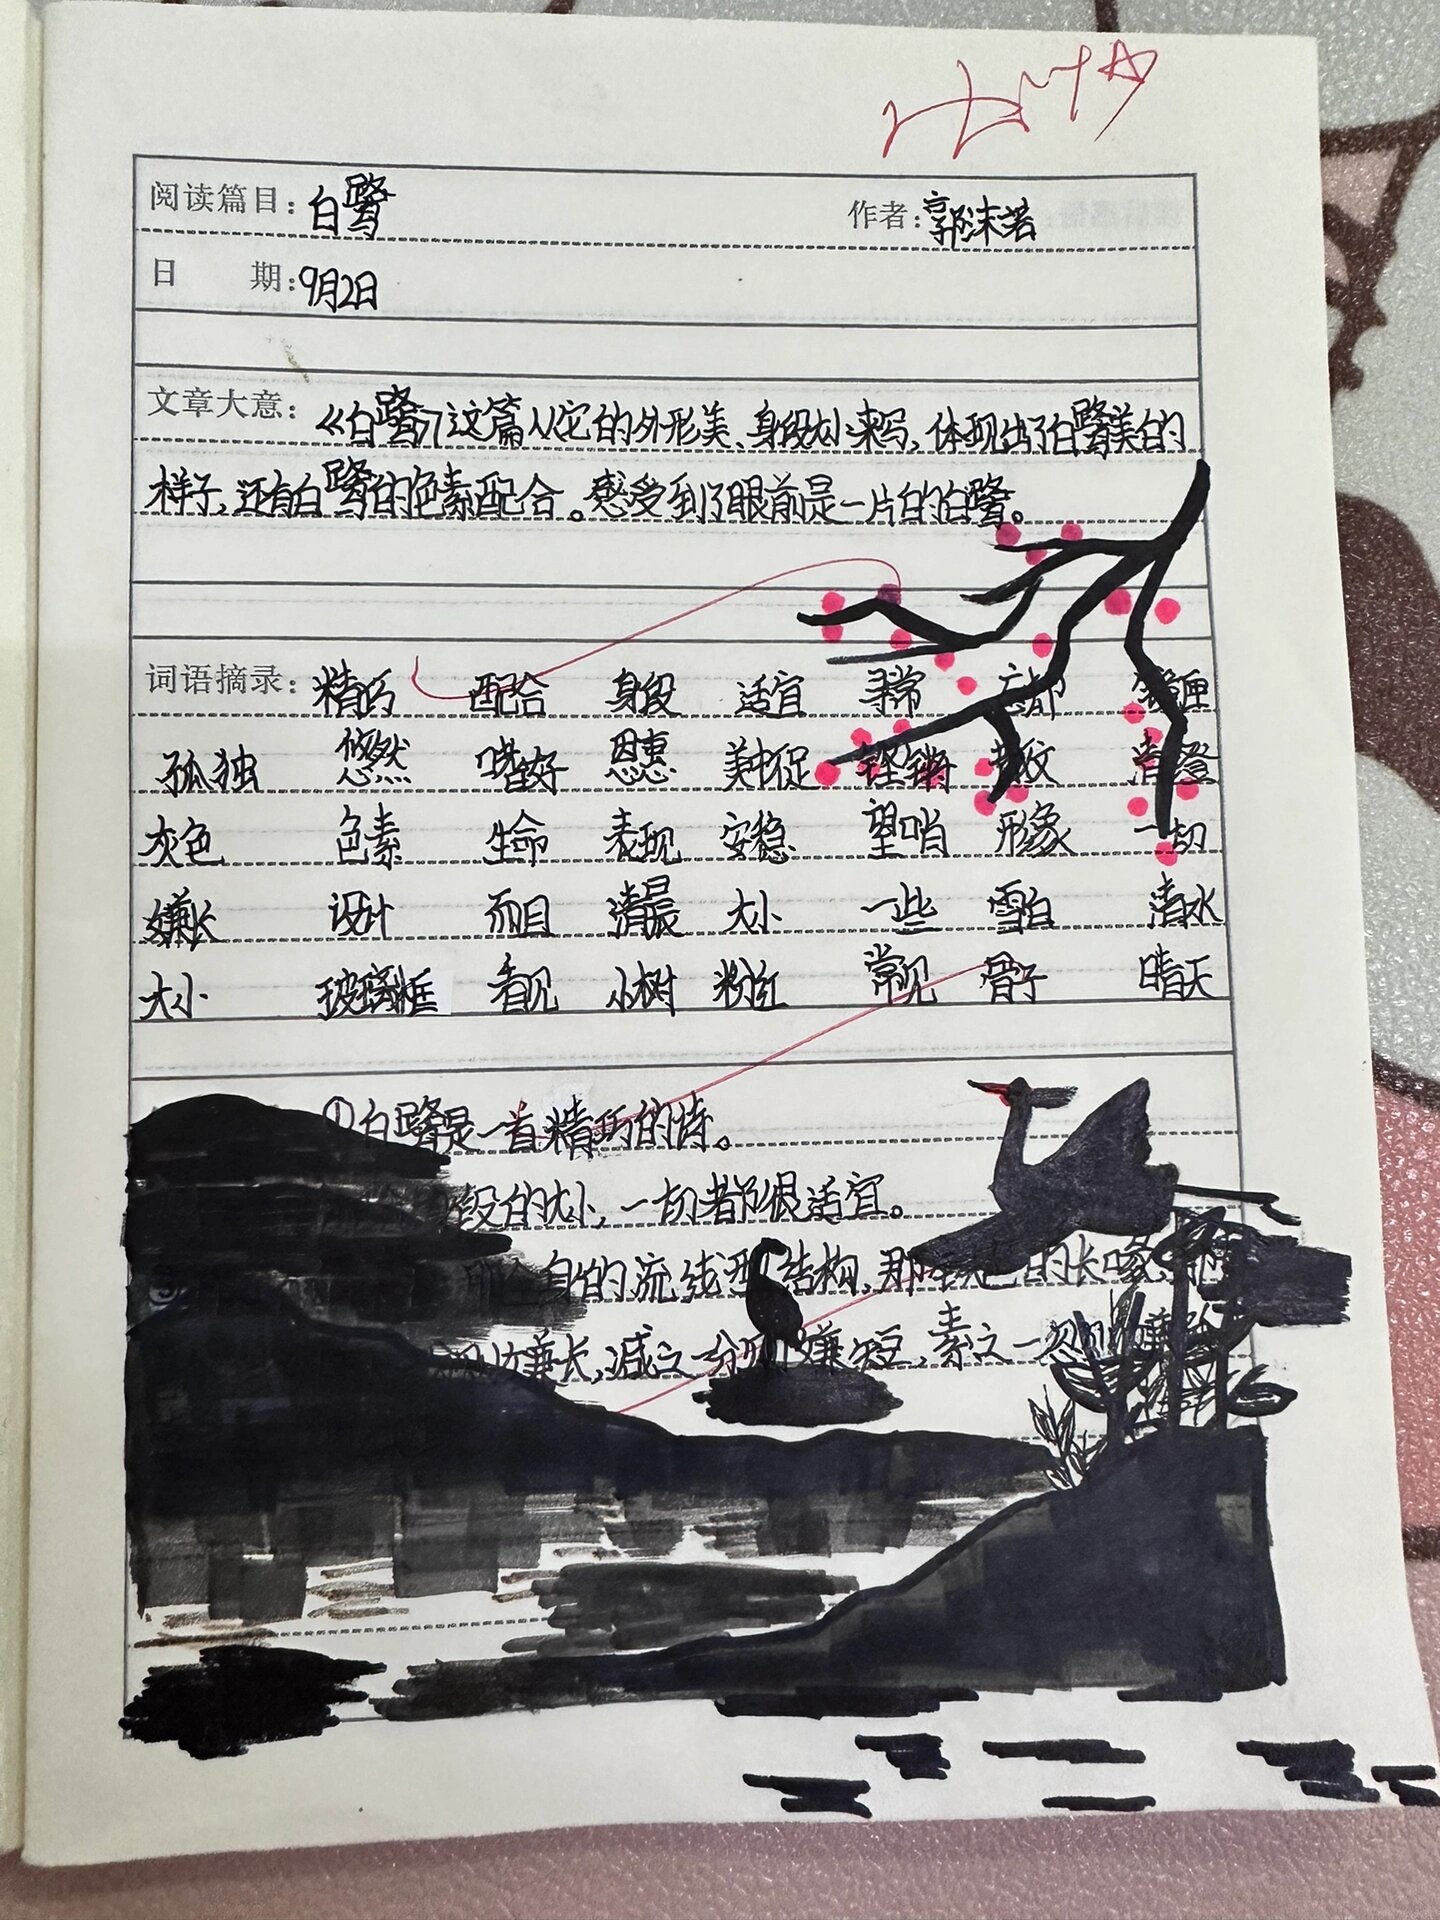 阅读篇目：白鹭 作者：郭沫若
日 期：9月2日
文章大意：《白鹭》这篇从它的外形美、身段大小来写，体现出了白鹭美的
样子，还有白鹭的色素配合。感受到了眼前是一片白的白鹭。
词语摘录：精巧 配合 身段 适宜 寻常 忘却 镜匣
孤独 悠然 嗜好 恩惠 美中不足 铿锵 清澄
灰色 色素 生命 表现 安稳 望哨 形象 一切
嫌长 设计 而且 清晨 大小 一些 雪白 清水
大小 玻璃框 看见 小树 粉红 常见 骨子 晴天
①白鹭是一首精巧的诗。
段的大小，一切都很适宜。
身的流线型结构，那铁色的长喙，
嫌长，减之一分则嫌短，素之一